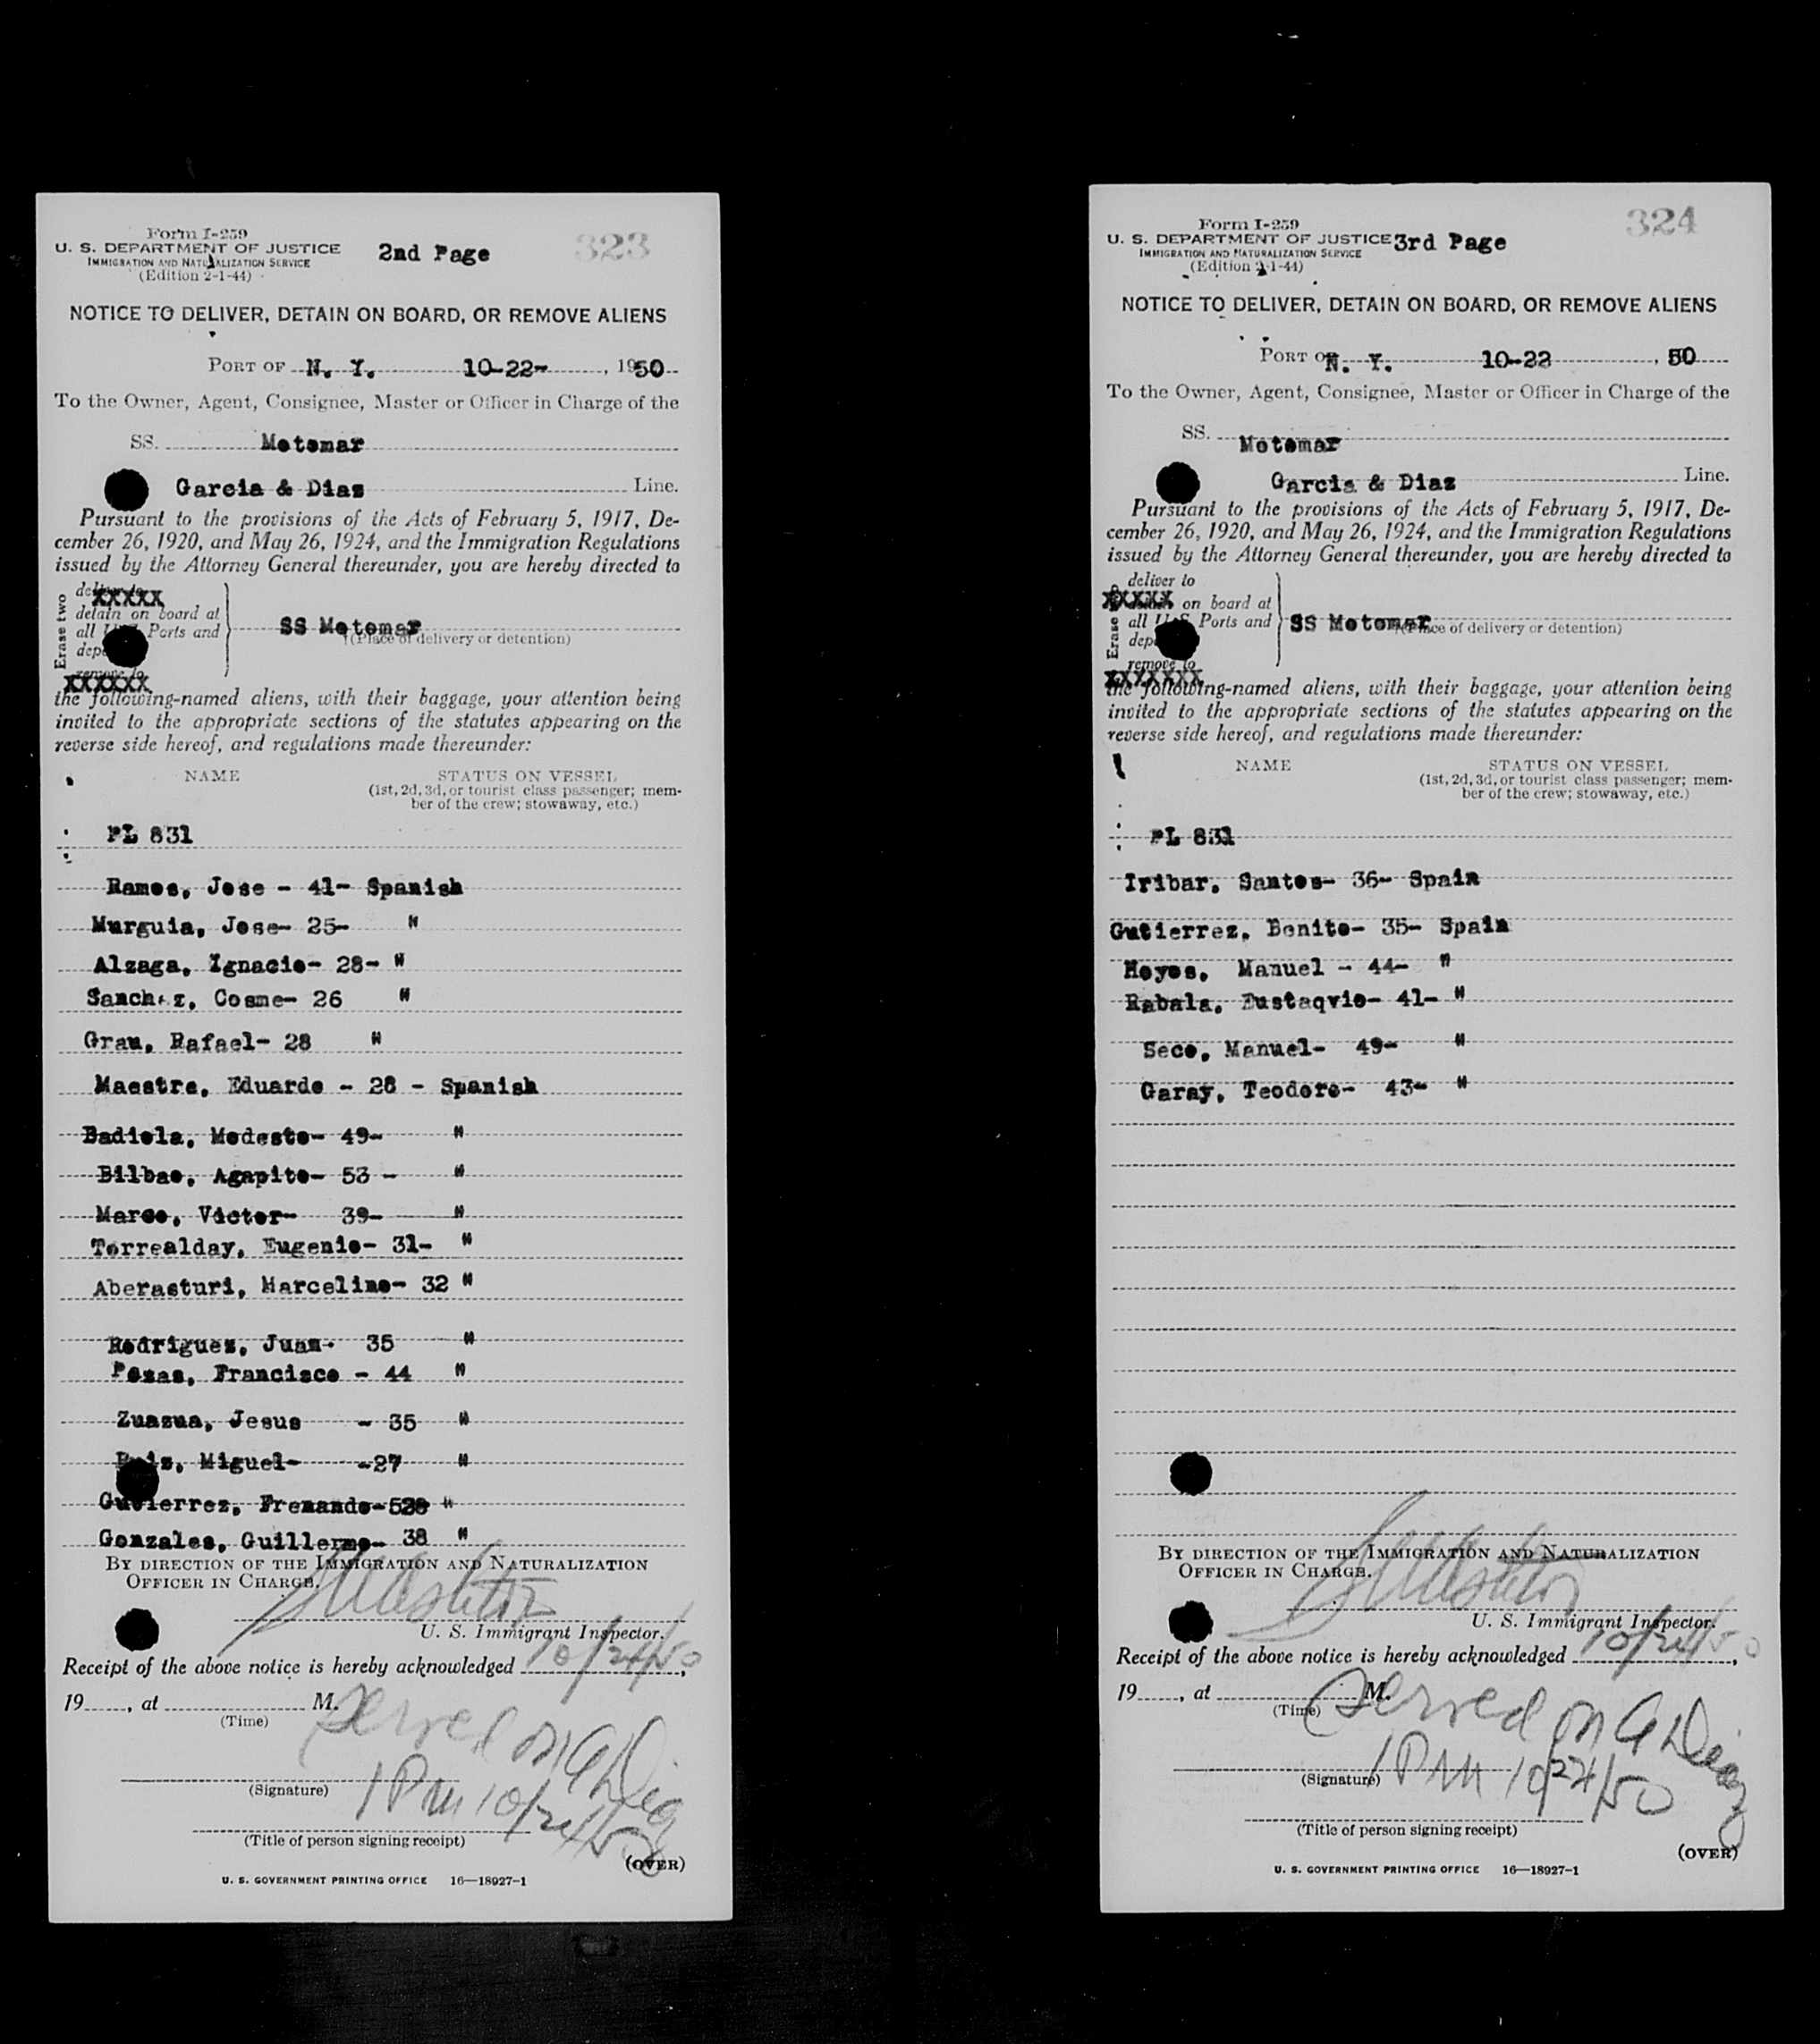 Form I-259
U. S. DEPARTMENT OF JUSTICE
IMMIGRATION AND NATURALIZATION SERVICE
(Edition 2-1-44)
2nd Page
323
NOTICE TO DELIVER, DETAIN ON BOARD, OR REMOVE ALIENS
PORT OF N. Y. 10-22- , 1950
To the Owner, Agent, Consignee, Master or Officer in Charge of the
SS. Motomar
Garcia & Diaz Line.
Pursuant to the provisions of the Acts of February 5, 1917, De-
cember 26, 1920, and May 26, 1924, and the Immigration Regulations
issued by the Attorney General thereunder, you are hereby directed to
Erase two
deliver to
detain on board at
all U.S. Ports and
SS Motomar
(Place of delivery or detention)
remove to
the following-named aliens, with their baggage, your attention being
invited to the appropriate sections of the statutes appearing on the
reverse side hereof, and regulations made thereunder:
NAME STATUS ON VESSEL
(1st, 2d, 3d, or tourist class passenger; mem-
ber of the crew; stowaway, etc.)
PL 831
Ramos, Jose - 41- Spanish
Murguia, Jose- 25- "
Alzaga, Ignacio- 28- "
Sanchez, Cosme- 26 "
Grau, Rafael- 28 "
Maestre, Eduardo - 28 - Spanish
Badiola, Modesto- 49- "
Bilbao, Agapito- 53 - "
Marco, Victor- 39- "
Torrealday, Eugenio- 31- "
Aberasturi, Marcelino- 32 "
Rodriguez, Juan- 35 "
Francisco - 44 "
Zuazua, Jesus - 35 "
Ruiz, Miguel- -27 "
Gutierrez, Fremando- "
Gonzales, Guillermo- 38 "
BY DIRECTION OF THE IMMIGRATION AND NATURALIZATION
OFFICER IN CHARGE.
U. S. Immigrant Inspector.
Receipt of the above notice is hereby acknowledged 10/24/50,
19......, at ............ M.
(Time)
Served on G Diaz
(Signature)
1 PM 10/24/50
(Title of person signing receipt)
(OVER)
U. S. GOVERNMENT PRINTING OFFICE 16—18927-1
Form I-259
U. S. DEPARTMENT OF JUSTICE
IMMIGRATION AND NATURALIZATION SERVICE
(Edition 2-1-44)
3rd Page
324
NOTICE TO DELIVER, DETAIN ON BOARD, OR REMOVE ALIENS
PORT OF N. Y. 10-22 , 50
To the Owner, Agent, Consignee, Master or Officer in Charge of the
SS. Motomar
Garcia & Diaz Line.
Pursuant to the provisions of the Acts of February 5, 1917, De-
cember 26, 1920, and May 26, 1924, and the Immigration Regulations
issued by the Attorney General thereunder, you are hereby directed to
Erase two
deliver to
detain on board at
all U.S. Ports and
SS Motomar
(Place of delivery or detention)
remove to
the following-named aliens, with their baggage, your attention being
invited to the appropriate sections of the statutes appearing on the
reverse side hereof, and regulations made thereunder:
NAME STATUS ON VESSEL
(1st, 2d, 3d, or tourist class passenger; mem-
ber of the crew; stowaway, etc.)
PL 831
Iribar, Santos- 36- Spain
Gutierrez, Benito- 35- Spain
Manuel - 44- "
Rabala, Eustaqvio- 41- "
Seco, Manuel- 49- "
Garay, Teodoro- 43- "
BY DIRECTION OF THE IMMIGRATION AND NATURALIZATION
OFFICER IN CHARGE.
U. S. Immigrant Inspector.
Receipt of the above notice is hereby acknowledged 10/24/50,
19......, at ............ M.
(Time)
Served on G Diaz
(Signature)
1 PM 10/24/50
(Title of person signing receipt)
(OVER)
U. S. GOVERNMENT PRINTING OFFICE 16—18927-1